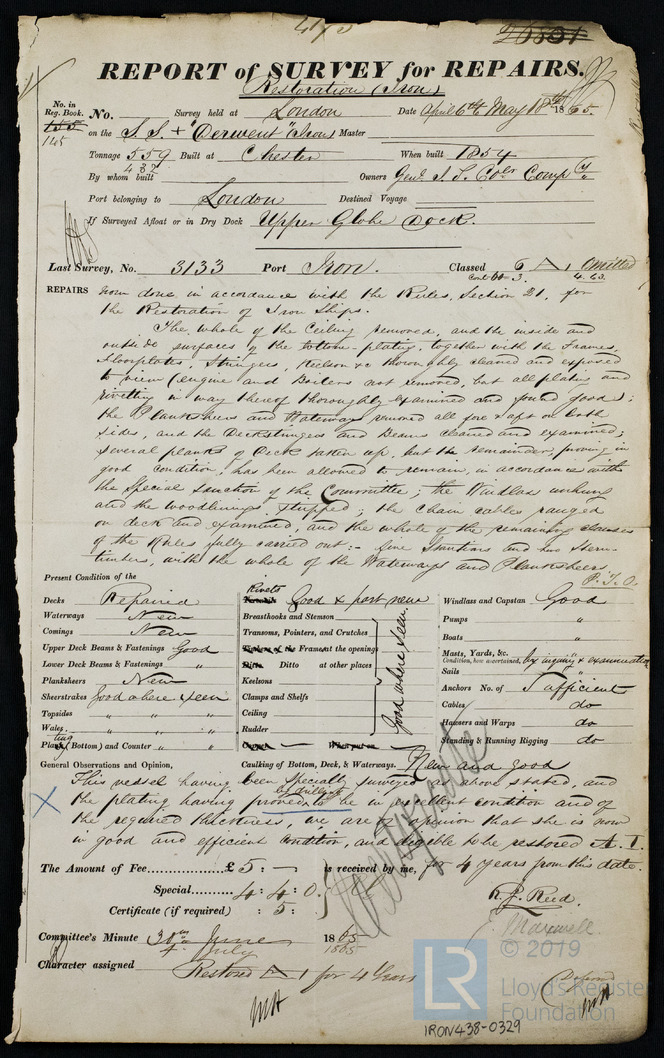 26801
REPORT of SURVEY for REPAIRS.
Restoration (Iron)
No. in Reg. Book. No. Survey held at London Date April 6th May 18th 1865.
155
145 on the S.S. + "Derwent" Iron Master
Tonnage 559 Built at Chester When built 1854
432
By whom built Owners Genl. S. S. Colr Compy
Port belonging to London Destined Voyage
If Surveyed Afloat or in Dry Dock Upper Globe Dock.
Last Survey, No. 3133 Port Iron. Classed 6 A 1 omitted
4.63
REPAIRS now done, in accordance with the Rules, Section 21, for
the Restoration of Iron Ships.
The whole of the Ceiling removed, and the inside and
outside surfaces of the bottom-plating, together with the Frames,
Floorplates, Stringers, Keelson &c thoroughly cleaned and exposed
to view (engine and Boilers not removed, but all plating and
rivetting in way thereof thoroughly examined and found good;
the Planksheers and Waterways removed all fore & aft on both
sides, and the Deckstringers and Beams cleaned and examined;
several planks of Deck taken up, but the remainder, proving in
good condition, has been allowed to remain, in accordance with
the Special Sanction of the Committee; the Windlass unhung
and the woodlinings stripped; the chain cables ranged
on deck and examined, and the whole of the remaining clauses
of the Rules fully carried out:- five Stantions and two Stern-
timbers, with the whole of the Waterways and Planksheers.
P.T.O.
Present Condition of the
Decks Repaired
Waterways New
Comings New
Upper Deck Beams & Fastenings Good
Lower Deck Beams & Fastenings "
Planksheers New
Sheerstrakes Good where seen
Topsides " " "
Wales " " "
Plating (Bottom) and Counter " "
Rivets Good & part new
Breasthooks and Stemson
Transoms, Pointers, and Crutches
Frames at the openings
Ditto at other places
Keelsons
Clamps and Shelfs
Ceiling
Rudder
Good where seen
Windlass and Capstan Good
Pumps "
Boats "
Masts, Yards, &c.
Condition, how ascertained, by inquiry & examination
Sails "
Anchors No. of Sufficient
Cables do
Hawsers and Warps do
Standing & Running Rigging do
General Observations and Opinion, Caulking of Bottom, Deck, & Waterways. New and good
This vessel having been specially surveyed as above stated, and
the plating having proved by drilling to be in excellent condition and of
the required thickness, we are of opinion that she is now
in good and efficient condition, and eligible to be restored A.1.
for 4 years from this date.
The Amount of Fee £ 5 : - is received by me,
Special 4 : 4 : 0.
Certificate (if required) : 5 :
R. J. Reed.
J. Maxwell.
Committee's Minute 30th June 1865
4 July 1865
Character assigned Restored A 1 for 4 Years
MH
MH
© 2019
LR
Lloyd's Register
Foundation
IRON438-0329